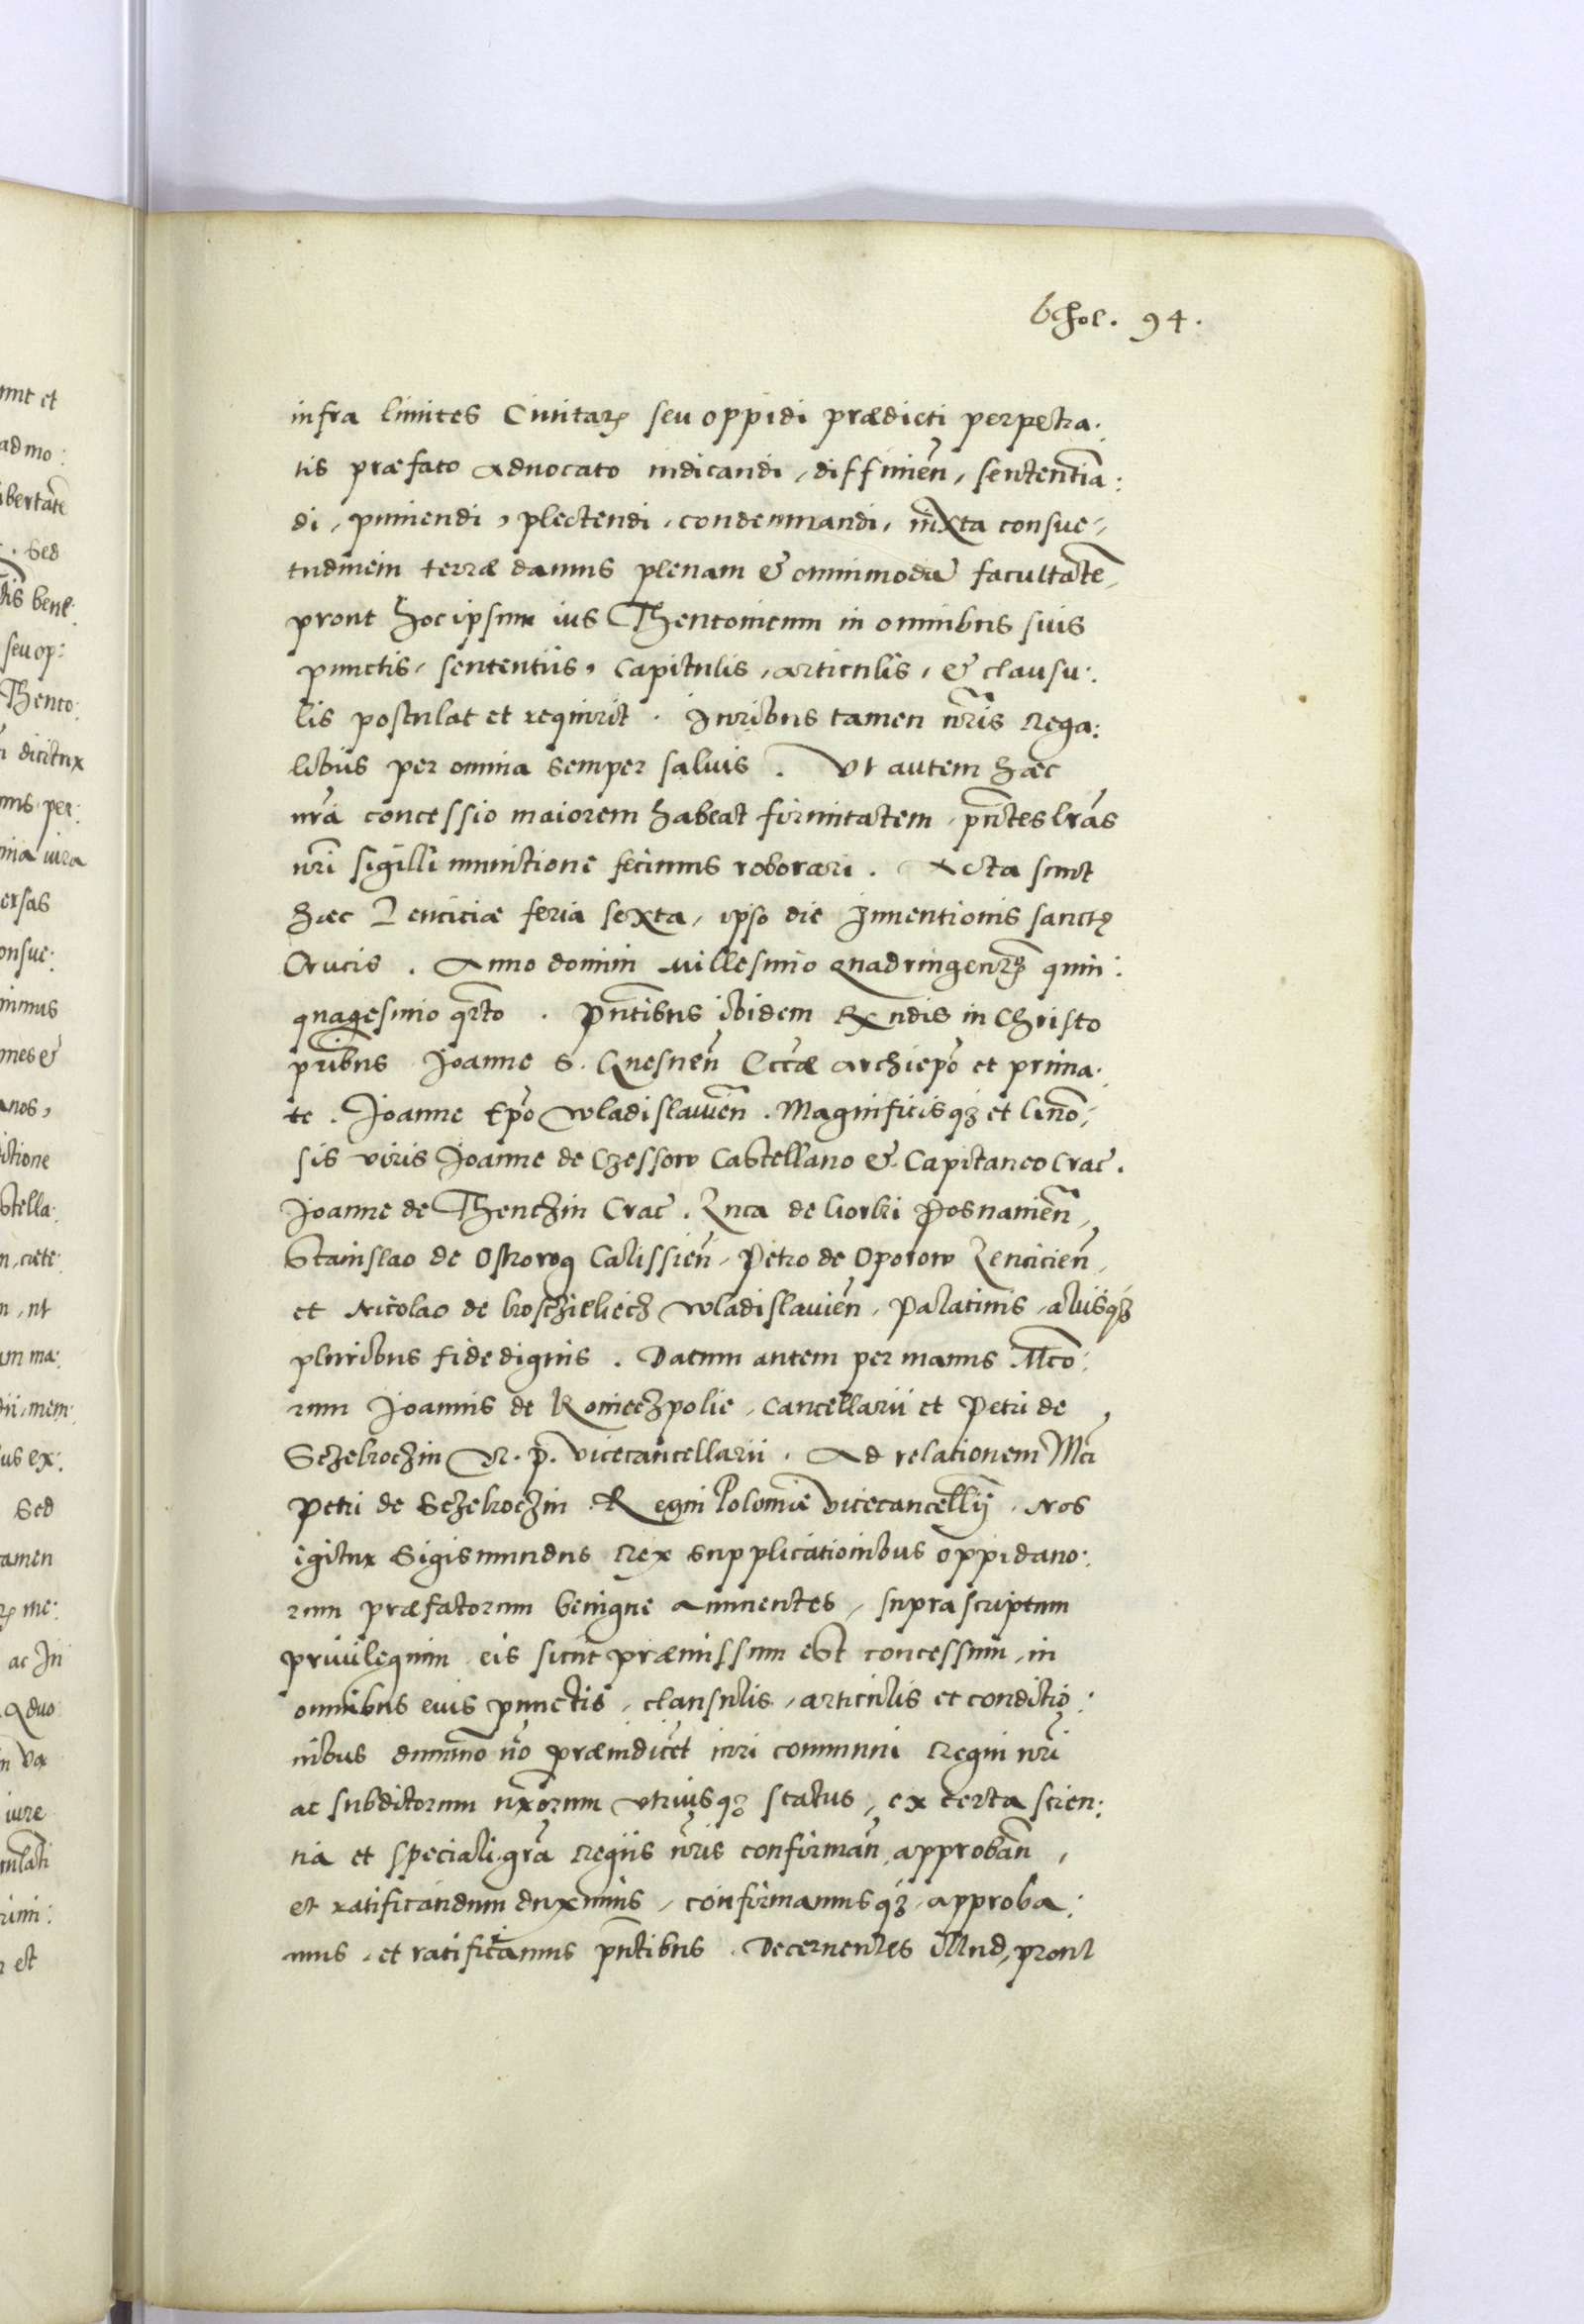 fol. 94.
infra limites Ciuitatꝭ seu oppidi prædicti perpetra:
tis præfato aduocato iudicandi, diffinien̄, sententia͂:
di, puniendi, plectendi, condemnandi, iuxta consue-
tudinem terræ damus plenam & omnimoda͂ facultate͂,
prout hoc ipsum ius Theutonicum in omnibus suis
punctis, sententiis, capitulis, articulis, & clausu:
lis postulat et requirit. Iuribus tamen nr̄is Rega:
libus per omnia semper saluis. Vt autem hæc
nr̄a concessio maiorem habeat firmitatem, pn̄tes lr̄as
nr̄i sigilli munitione fecimus roborari. Acta sunt
hæc Lenciciæ feria sexta, ipso die Inuentionis sanctę
Crucis. Anno domini millesimo quadringentesº quin:
quagesimo qr̄to. Pn̄tibus ibidem Rx̄ndis in Christo
pr̄ibus Ioanne S. Gnesnen̄ Eccl̄æ archiep̄o et prima:
te. Ioanne Ep̄o Wladislauien̄. Magnificisqꝫ et Gn̄o:
sis viris Ioanne de Czessow Castellano & Capitaneo Crac̄.
Ioanne de Thenczin Crac̄. Luca de Gorki Posnanien̄,
Stanislao de Ostrorog Calissien̄, Petro de Oporow Lencicien̄,
et Nicolao de koschieliecz wladislauien̄, Palatinis, aliisqꝫ
pluribus fide dignis. Datum autem per manus Mc̄o:
rum Ioannis de Konieczpolie, cancellarii et Petri de
Sczekoczin R. P. vicecancellarii. Ad relationem Mc̄i
Petri de Sczekoczin Regni Poloniæ vicecancellij̄. Nos
igitur Sigismundus Rex supplicationibus oppidano:
rum præfatorum benigne annuentes, suprascriptum
priuilegium eis sicut præmissum est concessum, in
omnibus eius punctis, clausulis, articulis et conditio:
nibus dummo͂ no͂ præiudicet iuri communi Regni nr̄i
ac subditorum nr̄orum vtriusqꝫ status, ex certa scien:
tia et speciali gr̄a Regiis nr̄is confirman̄, approban̄,
et ratificandum duximus, confirmamusqꝫ, approba:
mus, et ratificamus pn̄tibus. Decernentes illud, prout